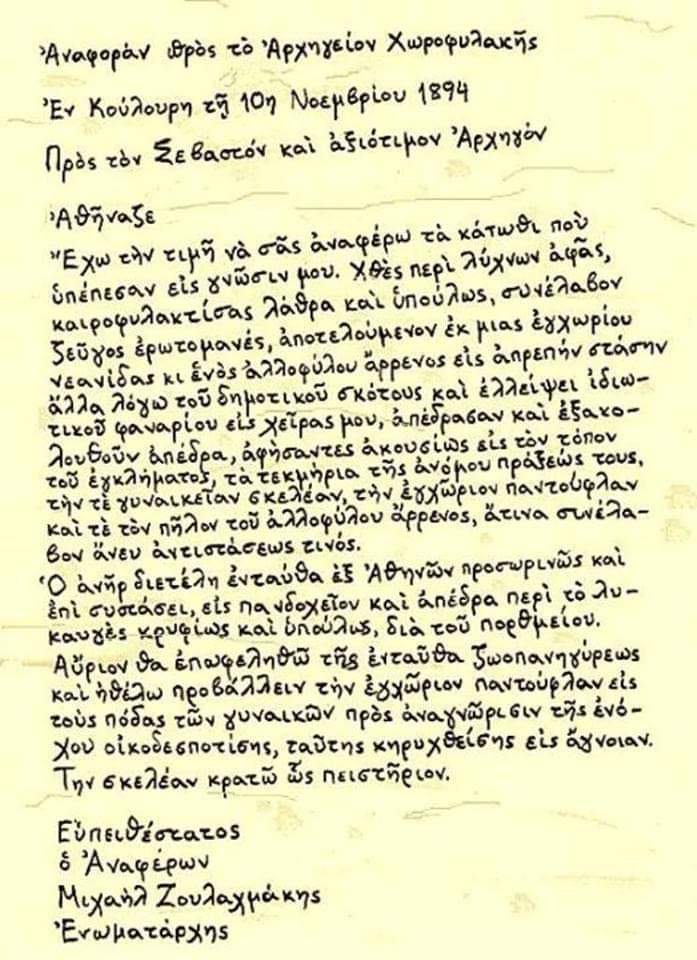 Ἀναφορὰν πρὸς τὸ Ἀρχηγεῖον Χωροφυλακῆς
Ἐν Κούλουρη τῇ 10η Νοεμβρίου 1894
Πρὸς τὸν Σεβαστόν καὶ ἀξιότιμον Ἀρχηγόν
Ἀθῆναζε
Ἔχω τὴν τιμῆ νὰ σᾶς ἀναφέρω τὰ κάτωθι ποὺ
ὑπέπεσαν εἰς γνῶσιν μου. Χθὲς περὶ λύχνων ἀφᾶς,
καιροφυλακτίσας λάθρα καὶ ὑπούλως, συνέλαβον
ζεῦγος ἐρωτομανές, ἀποτελούμενον ἐκ μιας ἐγχωρίου
νεανίδας κι ἑνὸς ἀλλοφύλου ἄρρενος εἰς ἀπρεπήν στάσην
ἄλλα λόγω τοῦ δημοτικοῦ σκότους καὶ ἐλλείψει ἰδιω-
τικοῦ φαναρίου εἰς χεῖρας μου, ἀπέδρασαν καὶ ἐξακο-
λουθοῦν ἀπέδρα, ἀφήσαντες ἀκουσίως εἰς τὸν τόπον
τοῦ ἐγκλήματος, τὰ τεκμήρια τῆς ἀνόμου πράξεώς τους,
τὴν τὲ γυναικεῖαν σκελέαν, τὴν ἐγχῶριον παντούφλαν
καὶ τὲ τὸν πῆλον τοῦ ἀλλοφύλου ἄρρενος, ἅτινα συνέλα-
βον ἄνευ ἀντιστάσεως τινός.
Ὁ ἀνὴρ διετέλη ἐνταύθα ἐξ Ἀθηνῶν προσωρινῶς καὶ
ἐπὶ συστάσει, εἰς πανδοχεῖον καὶ ἀπέδρα περὶ τὸ λυ-
καυγὲς κρυφίως καὶ ὑπούλως, διὰ τοῦ πορθμείου.
Αὔριον θα ἐπωφεληθῶ τῆς ἐνταύθα ζωοπανηγύρεως
καὶ ἠθέλω προβάλλειν τὴν ἐγχῶριον παντούφλαν εἰς
τοὺς πόδας τῶν γυναικῶν πρὸς ἀναγνώρισιν τῆς ἐνό-
χου οἰκοδεσποτίσης, ταῦτης κηρυχθείσης εἰς ἄγνοιαν.
Την σκελέαν κρατῶ ὡς πειστῆριον.
Εὐπειθέστατος
ὁ Ἀναφέρων
Μιχαὴλ Ζουλαχμάκης
Ἐνωματάρχης